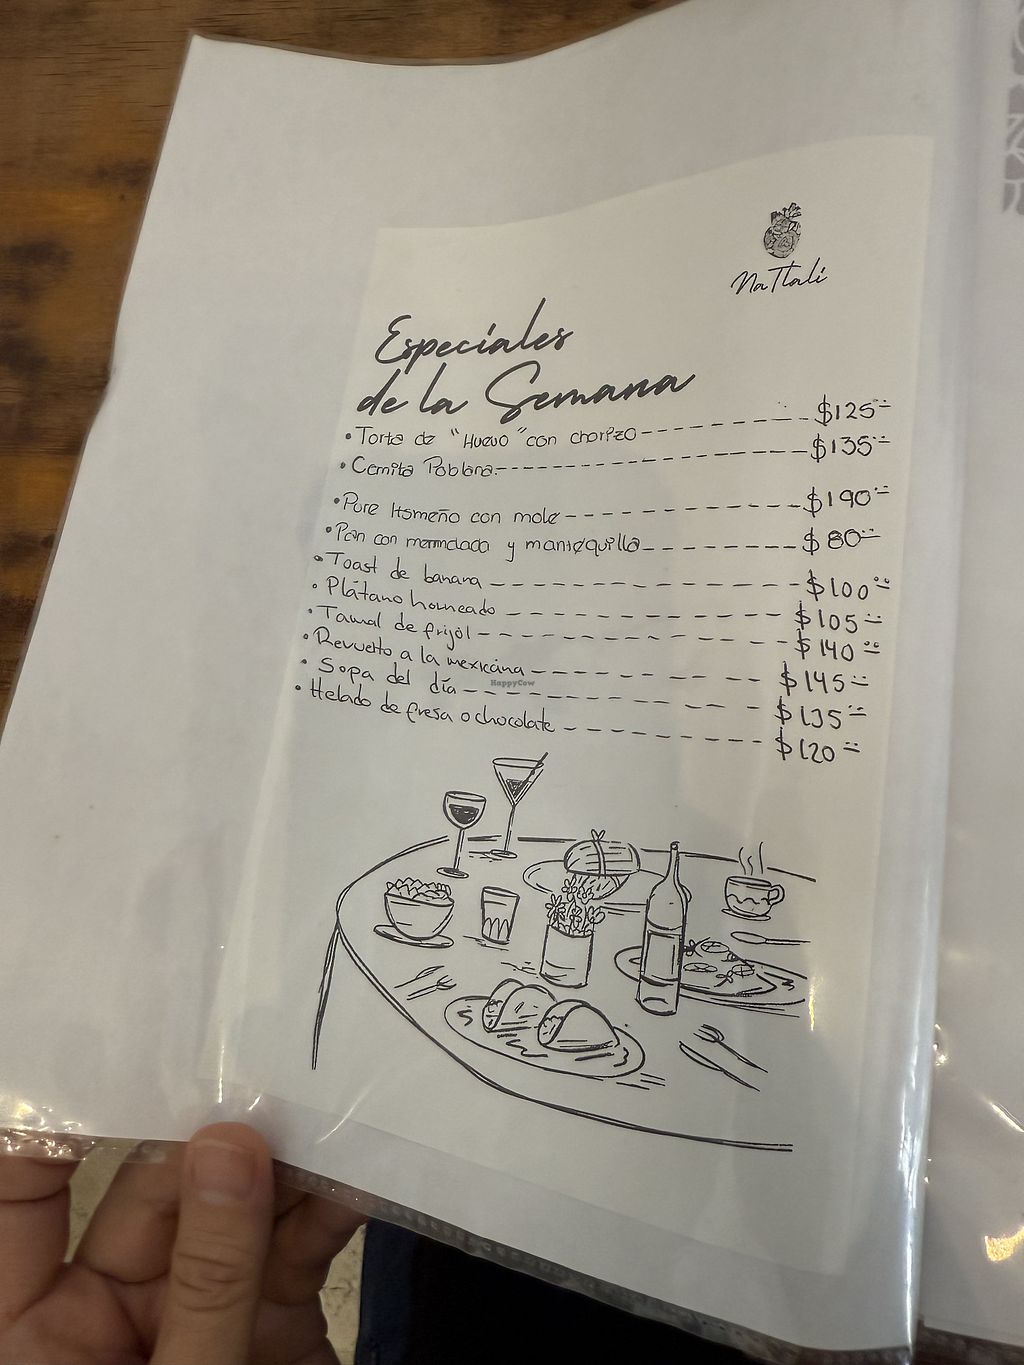 NaTlali
Especiales
de la Semana
• Torta de "Huevo" con chorizo --- $125.00
• Cemita Poblana. --- $135.00
• Pure Itsmeño con mole --- $190.00
• Pan con mermelada y mantequilla --- $80.00
• Toast de banana --- $100.00
• Plátano horneado --- $105.00
• Tamal de frijol --- $140.00
• Revuelto a la mexicana --- $145.00
• Sopa del día --- $135.00
• Helado de fresa o chocolate --- $120.00
HappyCow